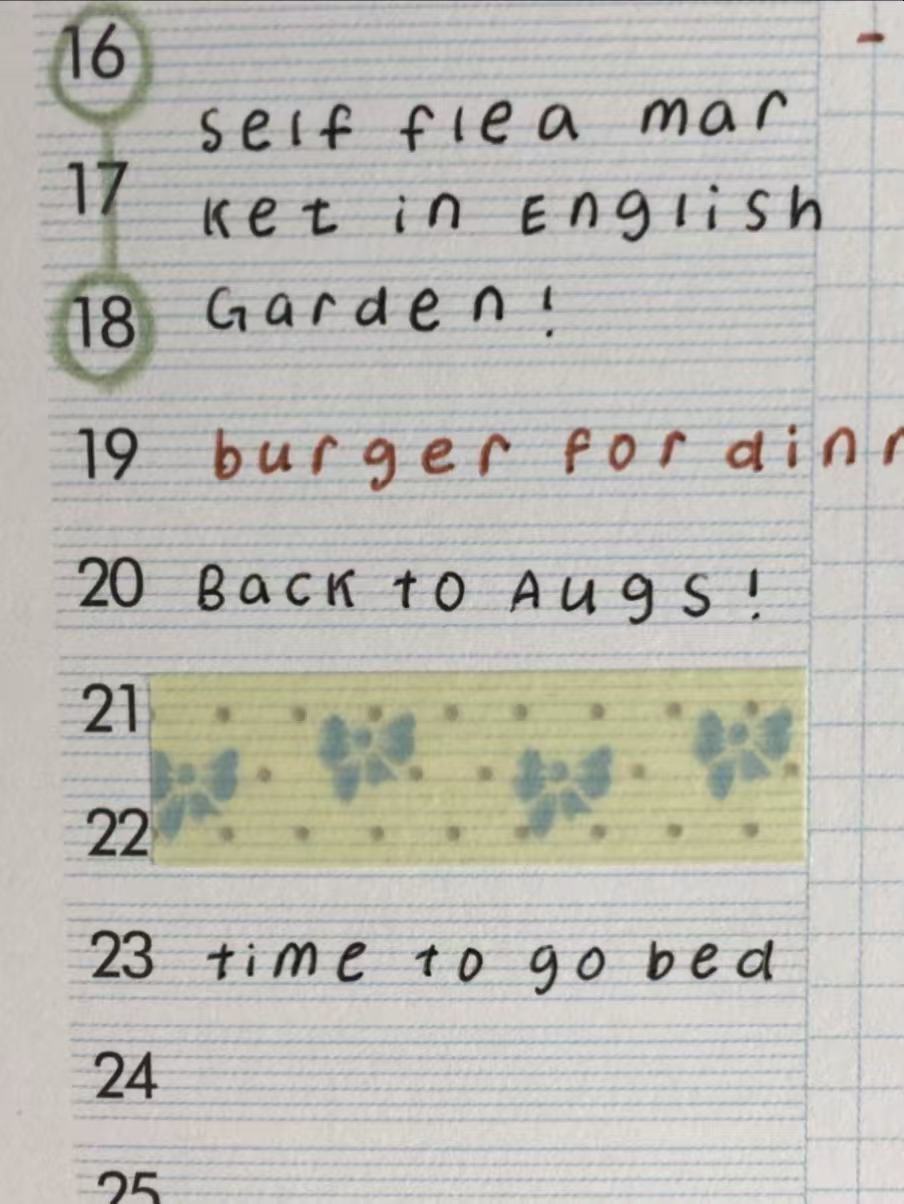 16
self flea mar
17
ket in English
18 Garden!
19 burger for dinr
20 Back to Augs!
21
22
23 time to go bed
24
25